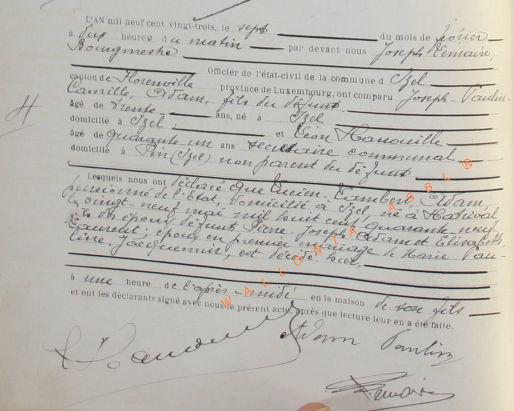 L'AN mil neuf cent vingt-trois, le sept du mois de février
à dix heures du matin par devant nous Joseph Lemaire,
Bourgmestre
Officier de l'état-civil de la commune d Izel
canton de Florenville province de Luxembourg, ont comparu Joseph-Paulin-
Camille, Adam, fils du défunt
âgé de trente ans, né à Izel
domicilié à Izel, et Léon Hanouille
âgé de quarante un ans secrétaire communal
domicilié à Pin (Izel) non parent du défunt
Lesquels nous ont déclaré que Lucien-Lambert Adam,
pensionné de l'Etat, domicilié à Izel, né à
le vingt-neuf mai mil huit cent quarante neuf
fils des époux défunts Pierre-Joseph Adam et Elisabeth
Laurent; époux en premier mariage de Marie-Pau-
line Jacquemin, est décédé hier,
à une heure de l'après-midi en la maison de son fils
et ont les déclarants signé avec nous le présent acte, après que lecture leur en a été faite.
Adam Paulin
WALLONIA ASBL ©